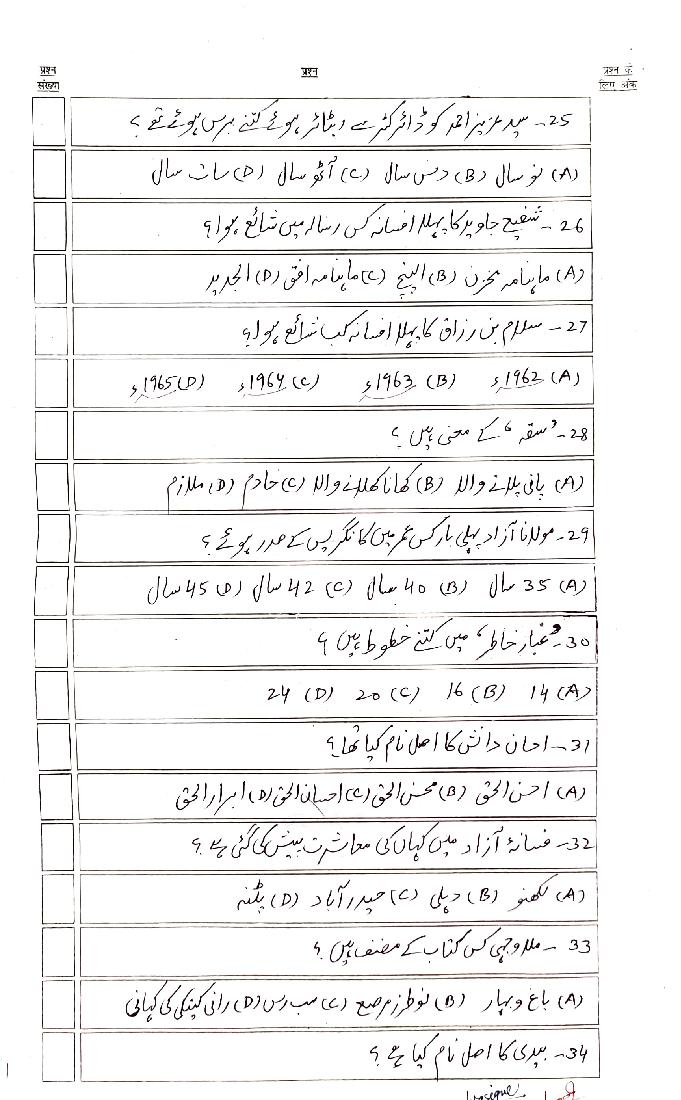 प्रश्न संख्या
प्रश्न
प्रश्न के लिए अंक
25- سید عزیز احمد کو ڈائرکٹر سے ریٹائر ہوئے کتنے برس ہوئے تھے؟
(A) نو سال (B) دس سال (C) آٹھ سال (D) سات سال
26- شفیع جاوید کا پہلا افسانہ کس رسالہ میں شائع ہوا؟
(A) ماہنامہ مخزن (B) الپنچ (C) ماہنامہ افق (D) الجدید
27- سلام بن رزاق کا پہلا افسانہ کب شائع ہوا؟
(A) 1962ء (B) 1963ء (C) 1964ء (D) 1965ء
28- ’سقہ‘ کے معنی ہیں؟
(A) پانی پلانے والا (B) کھانا کھلانے والا (C) خادم (D) ملازم
29- مولانا آزاد پہلی بار کس عمر میں کانگریس کے صدر ہوئے؟
(A) 35 سال (B) 40 سال (C) 42 سال (D) 45 سال
30- ’غبار خاطر‘ میں کتنے خطوط ہیں؟
(A) 14 (B) 16 (C) 20 (D) 24
31- احسان دانش کا اصل نام کیا تھا؟
(A) احسن الحق (B) محسن الحق (C) احسان الحق (D) ابرار الحق
32- فسانۂ آزاد میں کہاں کی معاشرت پیش کی گئی ہے؟
(A) لکھنو (B) دہلی (C) حیدرآباد (D) پٹنہ
33- ملا وجہی کس کتاب کے مصنف ہیں؟
(A) باغ و بہار (B) نو طرز مرصع (C) سب رس (D) رانی کیتکی کی کہانی
34- بیدی کا اصل نام کیا ہے؟